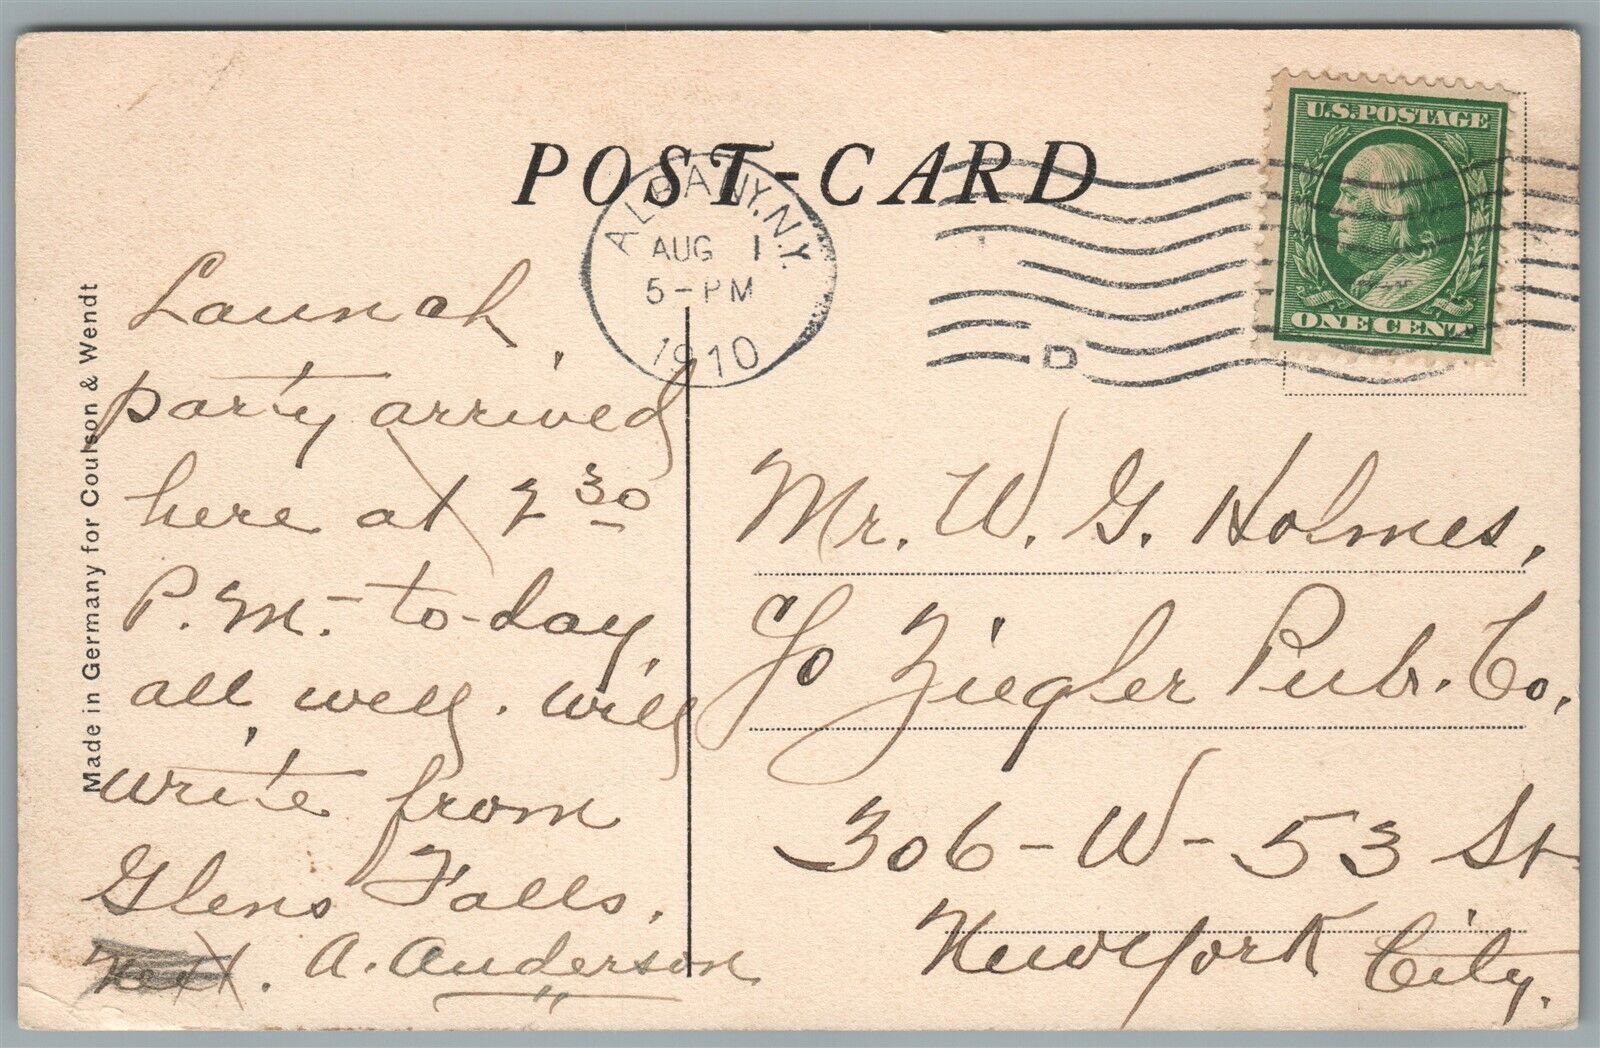 POST-CARD
ALBANY, N.Y.
AUG 1
5-PM
1910
D
U.S. POSTAGE
ONE CENT
Made in Germany for Coulson & Wendt
Launch
party arrived
here at 2 30
P.M. to-day,
all well. will
write from
Glens Falls.
A. Anderson
Mr. W. G. Holmes,
c/o Ziegler Pub. Co.
306-W-53 St
New York City.